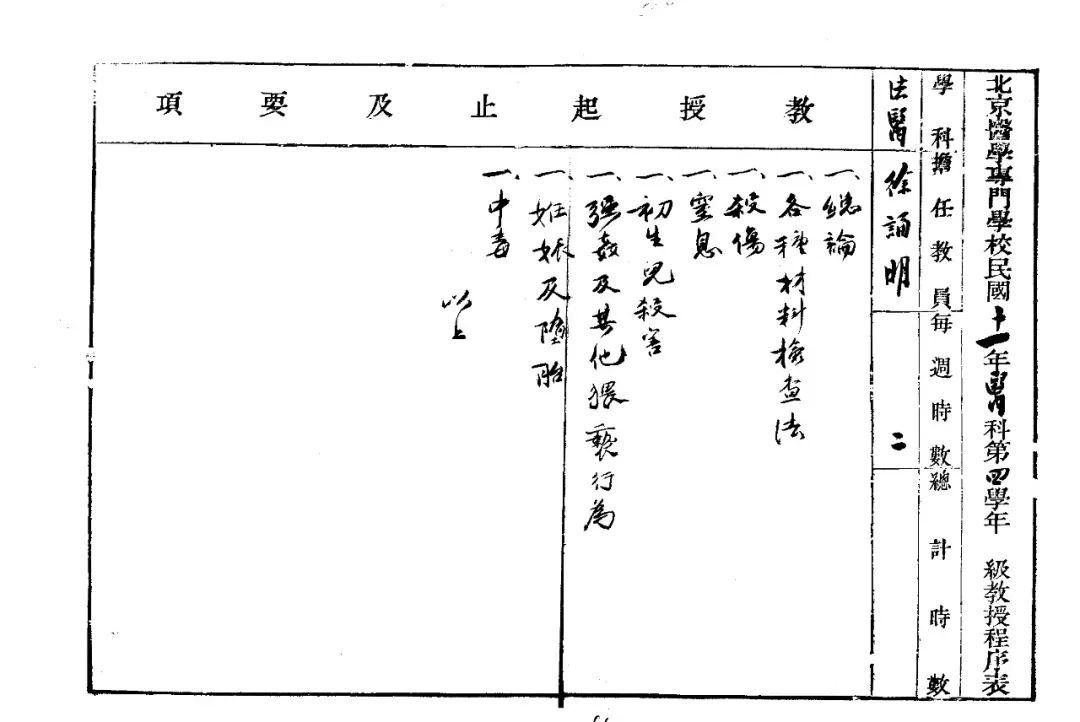 北京醫學專門學校民國十一年醫科第四學年 級教授程序表
學科 擔任教員 每週時數 總計時數
法醫 徐誦明 二
教授起止及要項
一、總論
一、各種材料檢查法
一、殺傷
一、窒息
一、初生兒殺害
一、強姦及其他猥褻行為
一、妊娠及墮胎
一、中毒
以上